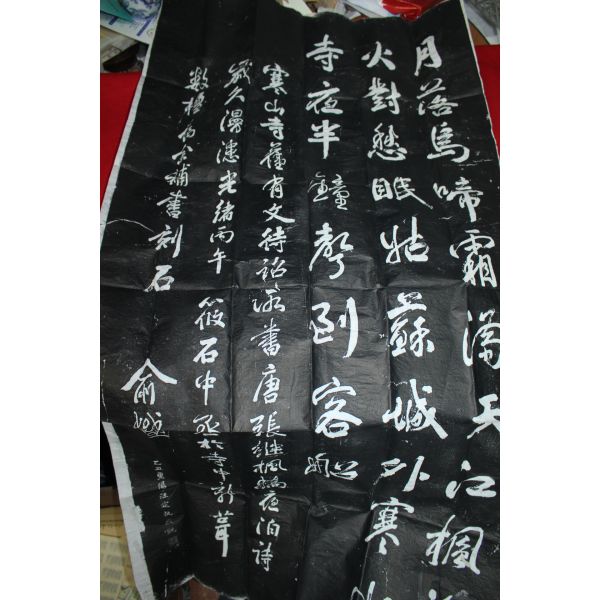 月落烏啼霜滿天江楓
火對愁眠姑蘇城外寒
寺夜半鐘聲到客船
寒山寺舊有文待詔所書唐張繼楓橋夜泊詩
歲久漫漶光緒丙午筱石中丞於寺中新葺
數楹屬余補書刻石
俞樾